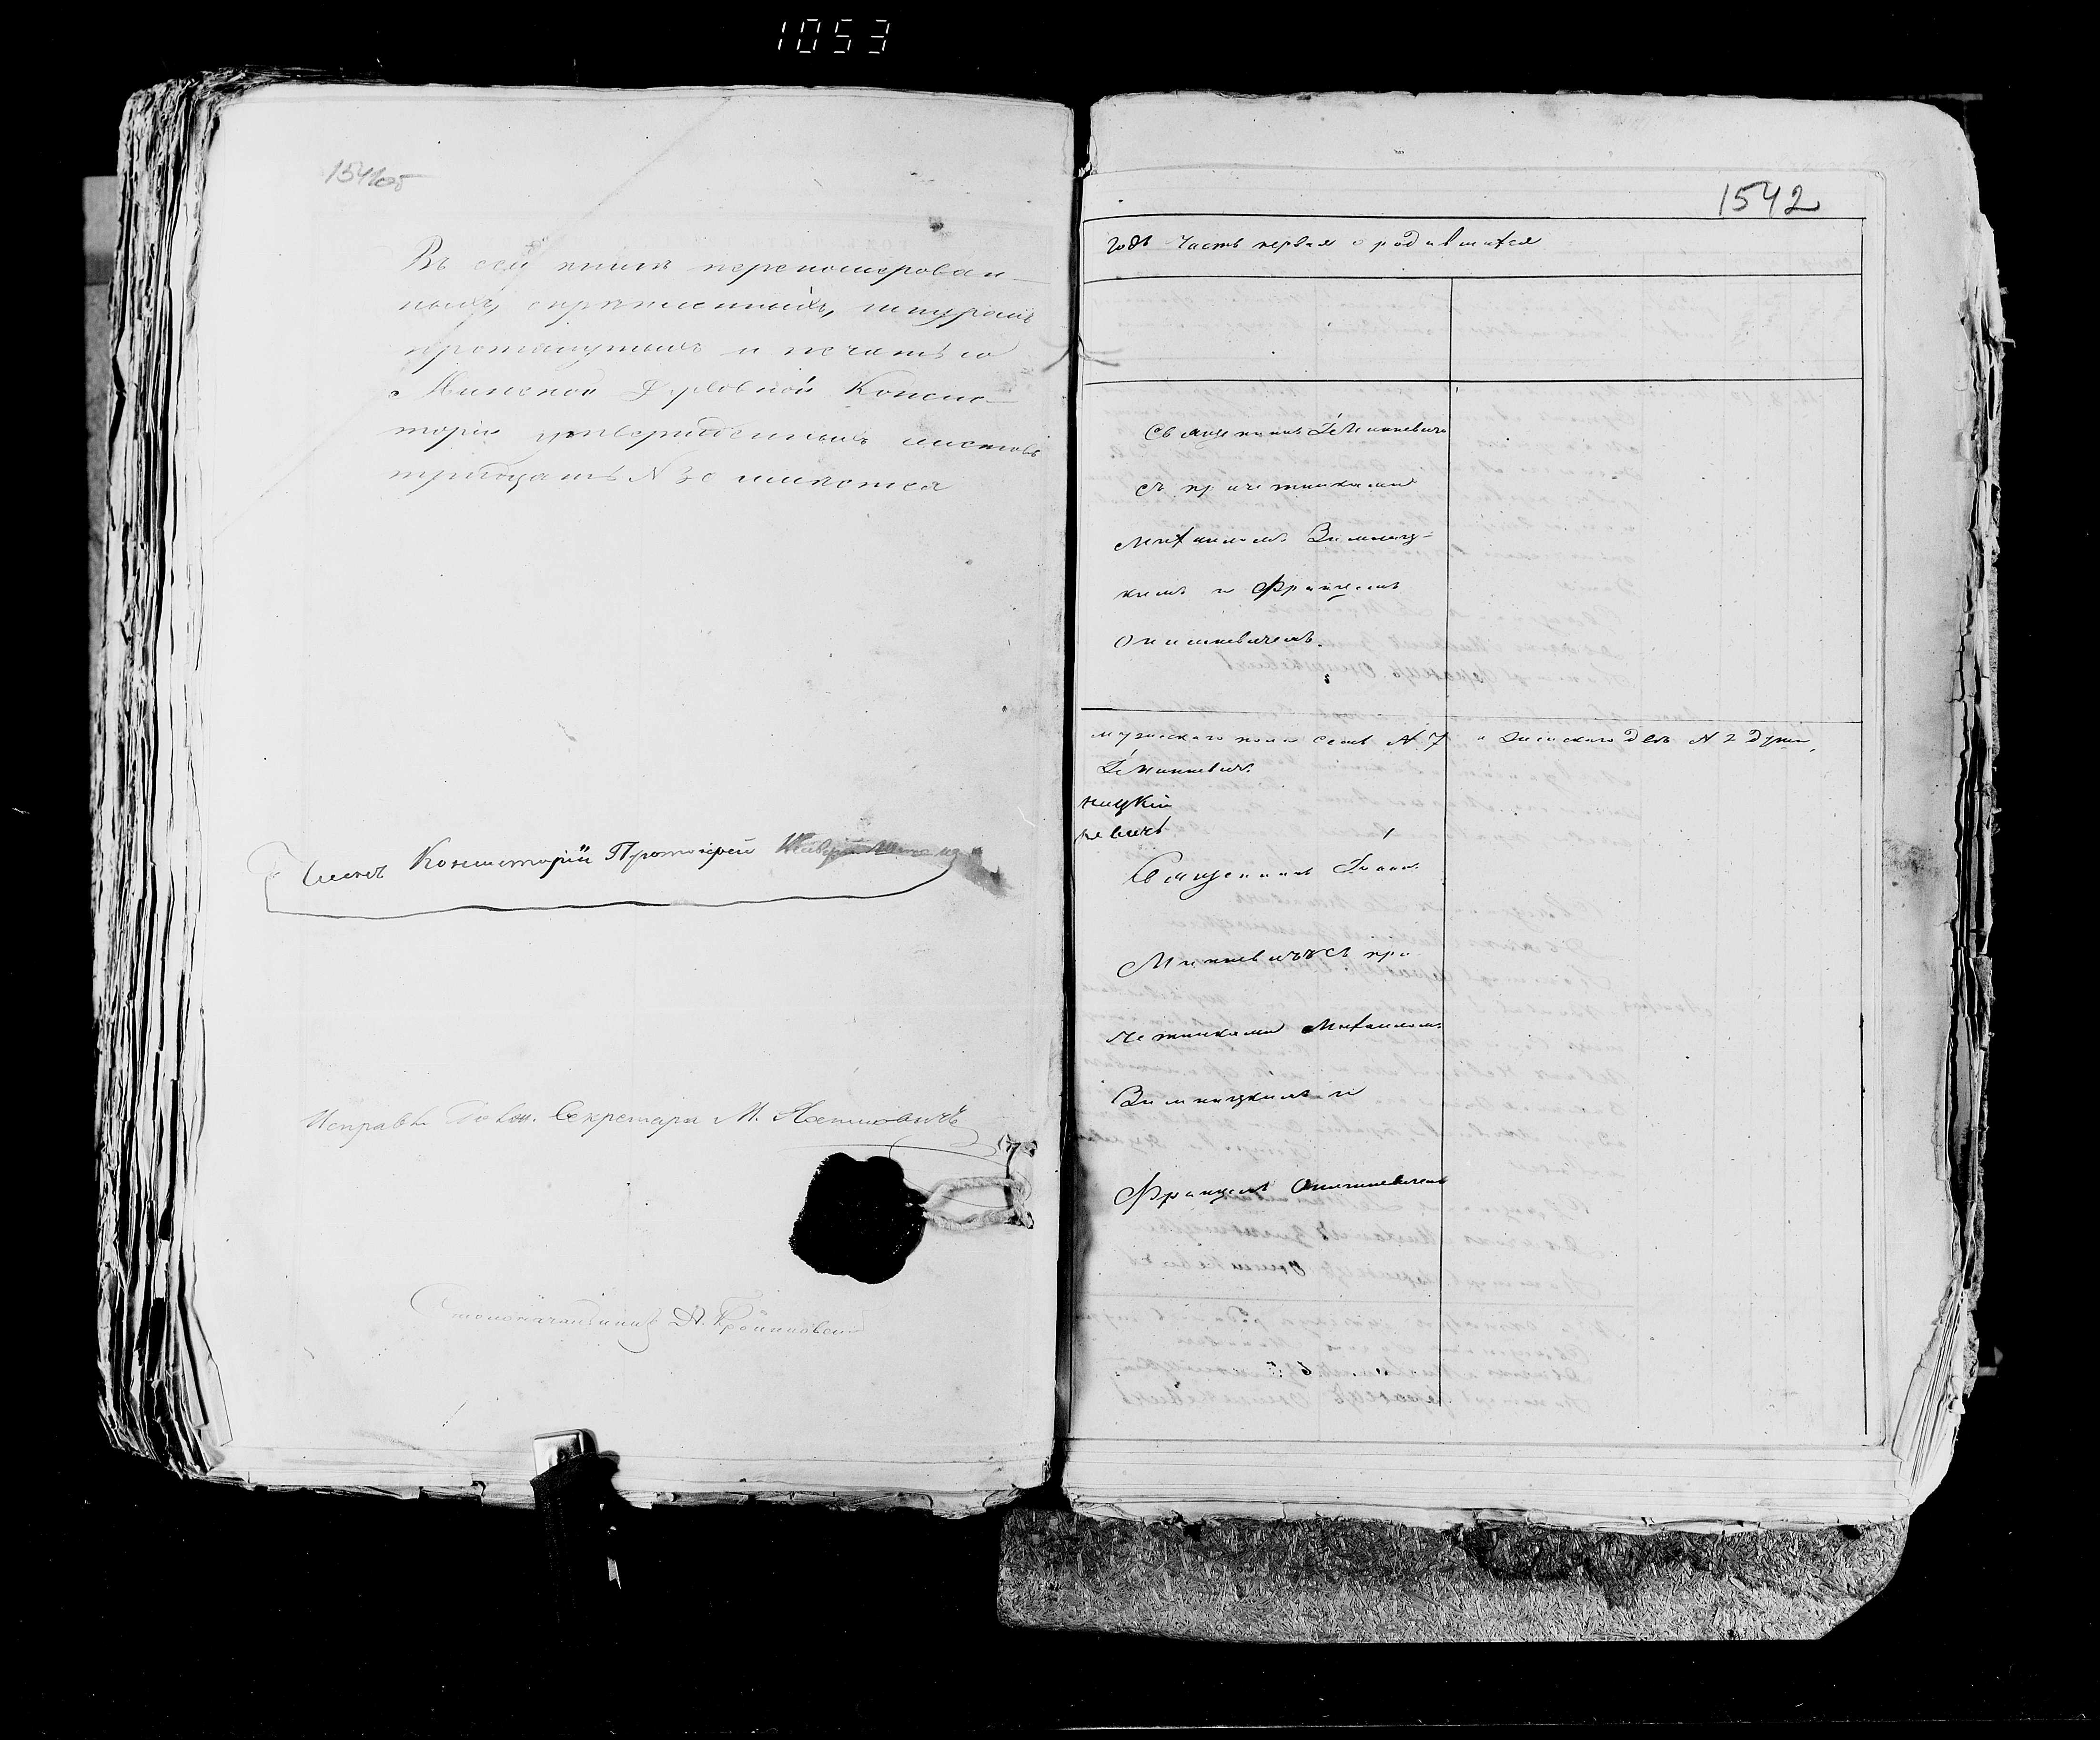 1053
1541об
Въ сей книгѣ перенумерован-
ныхъ, скрѣпленныхъ, шнуромъ
протянутыхъ и печатью
Минской Духовной Консис-
торіи утвержденныхъ листовъ
тридцать N 30 имѣется
Членъ Консисторіи Протоіерей
Исправ. Долж. Секретаря М.
Столоначальникъ
1542
годъ Часть первая о родившихся
Священникъ І. Минкевичъ
съ причетниками
Михаиломъ Зимниц-
кимъ и Францемъ
Онишкевичемъ.
мужескаго пола семь N 7 и женскаго двѣ N 2 души,
І. Минкевичъ
ницкій
кевичъ
Священникъ Іоаннъ
Минкевичъ съ при-
четниками Михаиломъ
Зимницкимъ и
Францемъ Онишкевичемъ